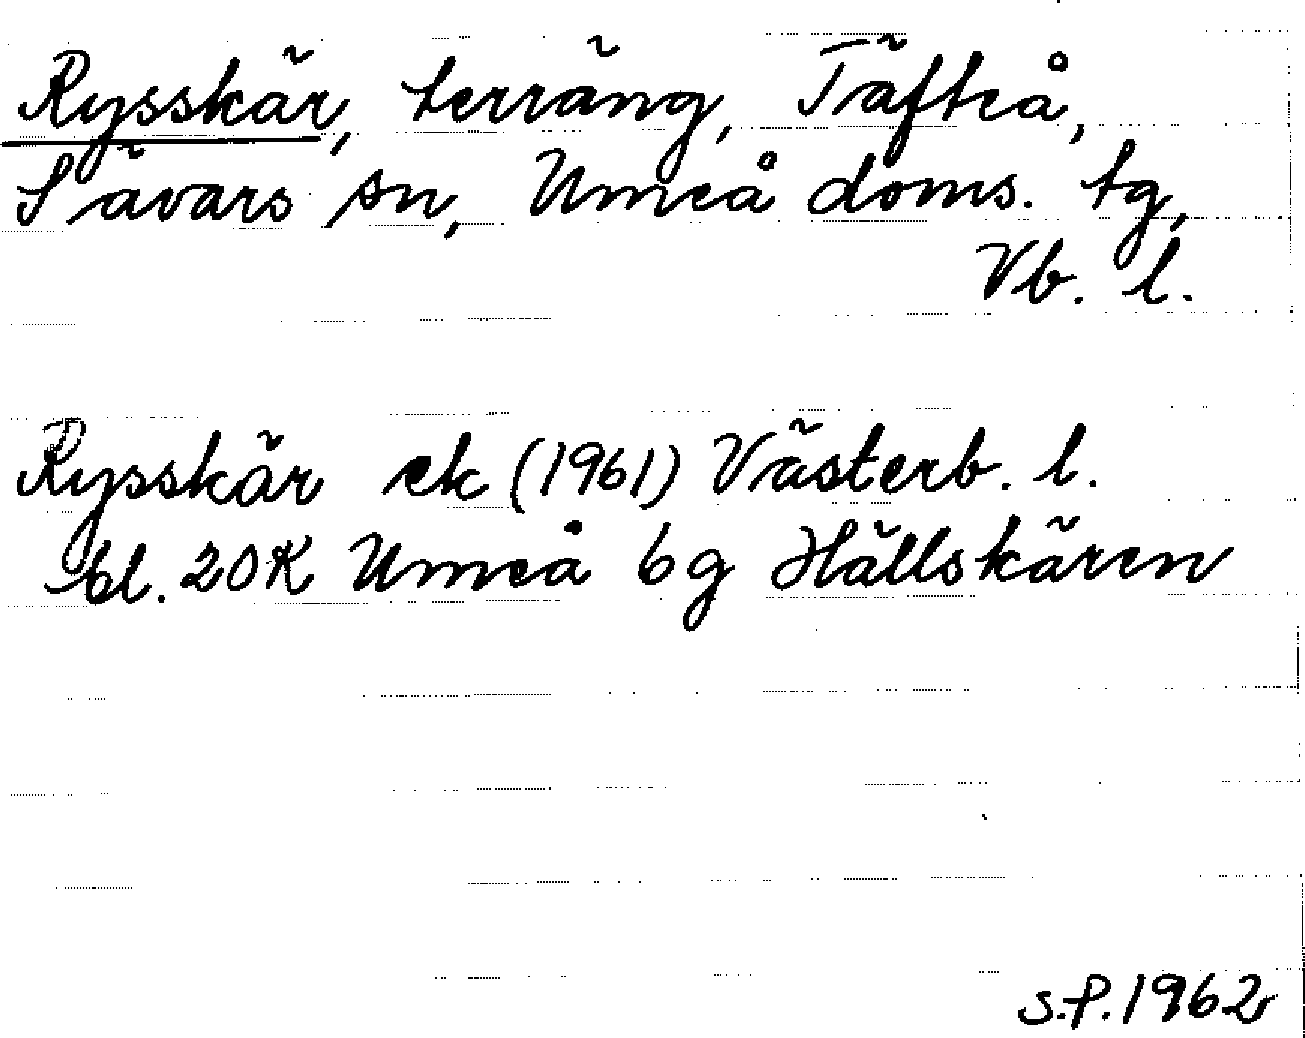 Rysskär, terräng, Täfteå,
Sävars sn, Umeå doms. tg,
Vb. l.
Rysskär ek (1961) Västerb. l.
bl. 20K Umeå 6g Hällskären
S.P. 1962